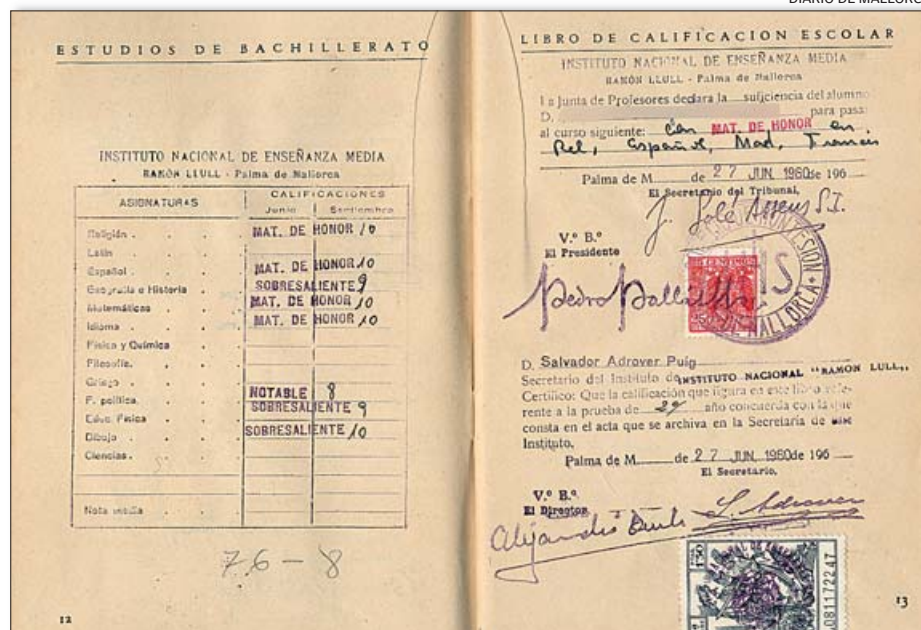 DIARIO DE MALLORC
ESTUDIOS DE BACHILLERATO
INSTITUTO NACIONAL DE ENSEÑANZA MEDIA
RAMÓN LLULL - Palma de Mallorca
ASIGNATURAS
CALIFICACIONES
Junio Septiembre
Religión . MAT. DE HONOR 10
Latín
Español . MAT. DE HONOR 10
Geografía e Historia . SOBRESALIENTE 9
Matemáticas . MAT. DE HONOR 10
Idioma . MAT. DE HONOR 10
Física y Química
Filosofía.
Griego .
F. política. NOTABLE 8
Educ. Física SOBRESALIENTE 9
Dibujo . SOBRESALIENTE 10
Ciencias .
Nota media
76 - 8
12
LIBRO DE CALIFICACION ESCOLAR
INSTITUTO NACIONAL DE ENSEÑANZA MEDIA
RAMÓN LLULL - Palma de Mallorca
La Junta de Profesores declara la suficiencia del alumno
D. para pasar
al curso siguiente: Con MAT. DE HONOR en
Rel, Español, Mat, Francés
Palma de M de 27 JUN. 1960de 196
El Secretario del Tribunal,
J. Solé S.I.
V.º B.º
El Presidente
Pedro
MONTESION
DE MALLORCA
D. Salvador Adrover Puig
Secretario del Instituto de INSTITUTO NACIONAL "RAMON LULL,,
Certifico: Que la calificación que figura en este libro refe-
rente a la prueba de 2º año concuerda con la que
consta en el acta que se archiva en la Secretaría de
Instituto.
Palma de M de 27 JUN. 1960de 196
El Secretario,
S. Adrover
V.º B.º
El Director
Alejandro
081172247
13